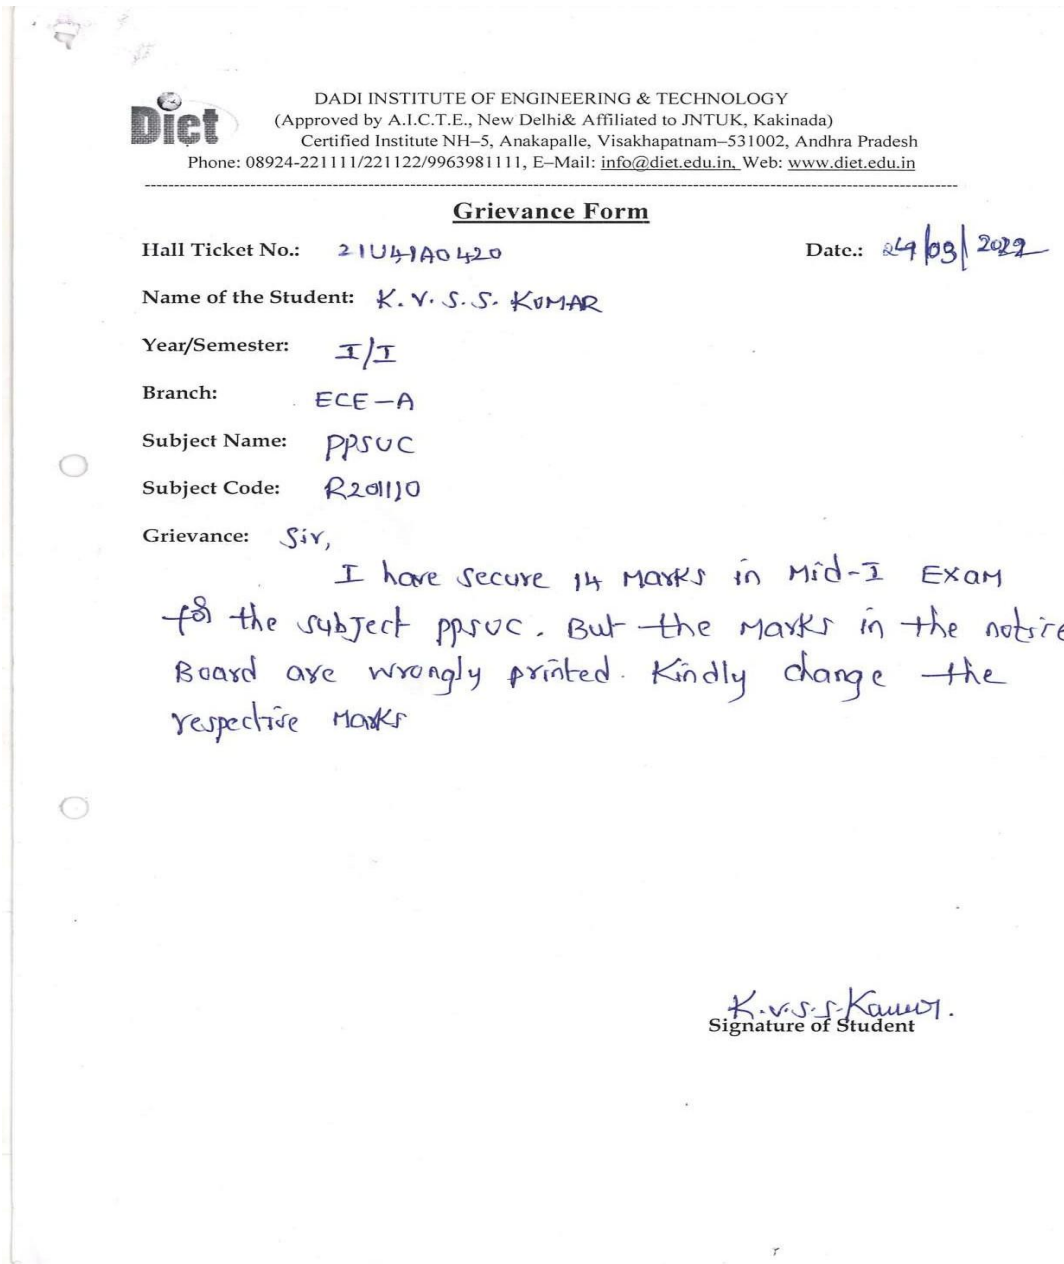 Diet
DADI INSTITUTE OF ENGINEERING & TECHNOLOGY
(Approved by A.I.C.T.E., New Delhi& Affiliated to JNTUK, Kakinada)
Certified Institute NH–5, Anakapalle, Visakhapatnam–531002, Andhra Pradesh
Phone: 08924-221111/221122/9963981111, E–Mail: info@diet.edu.in, Web: www.diet.edu.in
Grievance Form
Hall Ticket No.: 21U41A0420 Date.: 24/03/2022
Name of the Student: K.V.S.S. KUMAR
Year/Semester: I/I
Branch: ECE-A
Subject Name: PPSUC
Subject Code: R201110
Grievance: Sir,
I have secure 14 Marks in Mid-I Exam
for the subject ppsuc. But the Marks in the notice
Board are wrongly printed. Kindly change the
respective Marks
K.v.s.s.Kumar.
Signature of Student